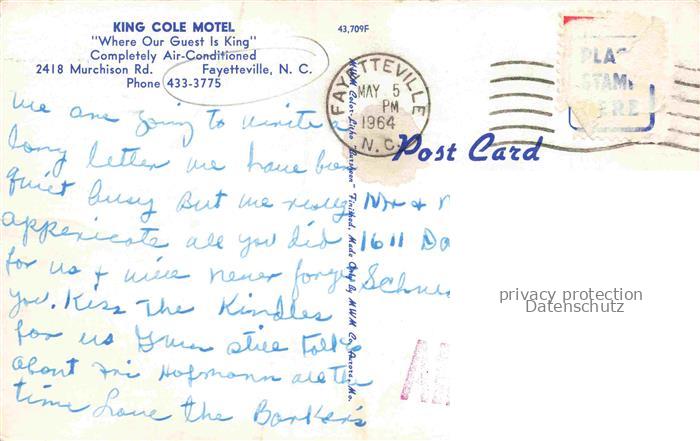 KING COLE MOTEL
"Where Our Guest Is King"
Completely Air-Conditioned
2418 Murchison Rd. Fayetteville, N. C.
Phone 433-3775
43,709F
FAYETTEVILLE
MAY 5
PM
1964
N.C.
PLAC
STAMP
HERE
Post Card
We are going to write a
long letter we have been
quiet busy But we really
appericate all you did
for us & will never forget
you. Kiss The Kindles
for us still talks
about Hofmann all the
time Love the Barker's
Mr &
1611 Da
Schne
MWM Color-Litho "Earvpeen" Finished, Made Only By MWM Co., Aurora, Mo.
privacy protection
Datenschutz